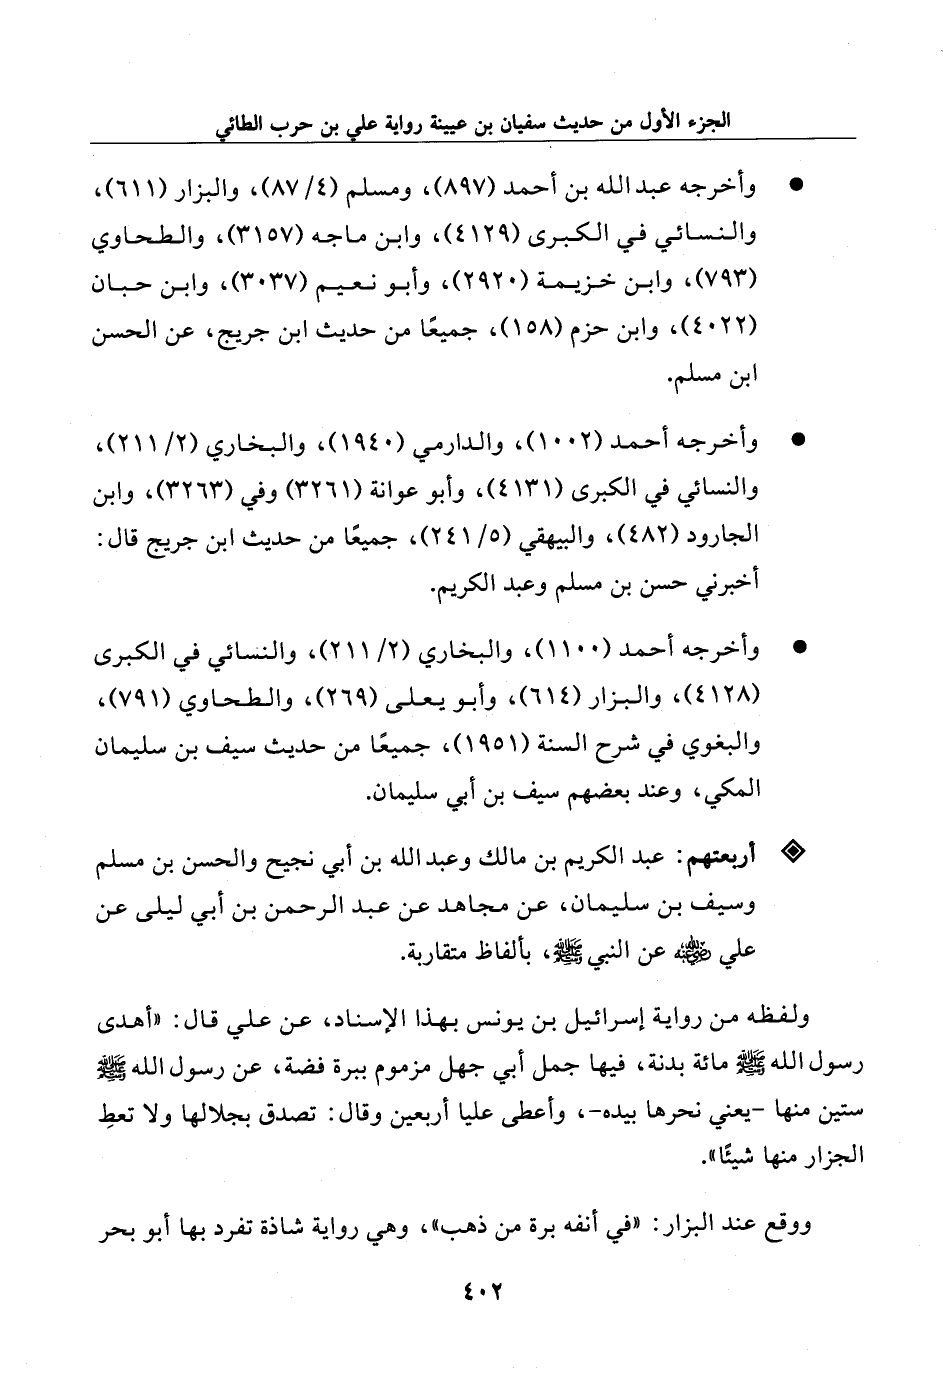 الجزء الأول من حديث سفيان بن عيينة رواية علي بن حرب الطائي
● وأخرجه عبد الله بن أحمد (٨٩٧)، ومسلم (٤/ ٨٧)، والبزار (٦١١)،
والنسائي في الكبرى (٤١٢٩)، وابن ماجه (٣١٥٧)، والطحاوي
(٧٩٣)، وابن خزيمة (٢٩٢٠)، وأبو نعيم (٣٠٣٧)، وابن حبان
(٤٠٢٢)، وابن حزم (١٥٨)، جميعًا من حديث ابن جريج، عن الحسن
ابن مسلم.
● وأخرجه أحمد (١٠٠٢)، والدارمي (١٩٤٠)، والبخاري (٢/ ٢١١)،
والنسائي في الكبرى (٤١٣١)، وأبو عوانة (٣٢٦١) وفي (٣٢٦٣)، وابن
الجارود (٤٨٢)، والبيهقي (٥/ ٢٤١)، جميعًا من حديث ابن جريج قال:
أخبرني حسن بن مسلم وعبد الكريم.
● وأخرجه أحمد (١١٠٠)، والبخاري (٢/ ٢١١)، والنسائي في الكبرى
(٤١٢٨)، والبزار (٦١٤)، وأبو يعلى (٢٦٩)، والطحاوي (٧٩١)،
والبغوي في شرح السنة (١٩٥١)، جميعًا من حديث سيف بن سليمان
المكي، وعند بعضهم سيف بن أبي سليمان.
◈ أربعتهم: عبد الكريم بن مالك وعبد الله بن أبي نجيح والحسن بن مسلم
وسيف بن سليمان، عن مجاهد عن عبد الرحمن بن أبي ليلى عن
علي رضي الله عنه عن النبي ﷺ، بألفاظ متقاربة.
ولفظه من رواية إسرائيل بن يونس بهذا الإسناد، عن علي قال: «أهدى
رسول الله ﷺ مائة بدنة، فيها جمل أبي جهل مزموم ببرة فضة، عن رسول الله ﷺ
ستين منها -يعني نحرها بيده-، وأعطى عليا أربعين وقال: تصدق بجلالها ولا تعطِ
الجزار منها شيئًا».
ووقع عند البزار: «في أنفه برة من ذهب»، وهي رواية شاذة تفرد بها أبو بحر
٤٠٢